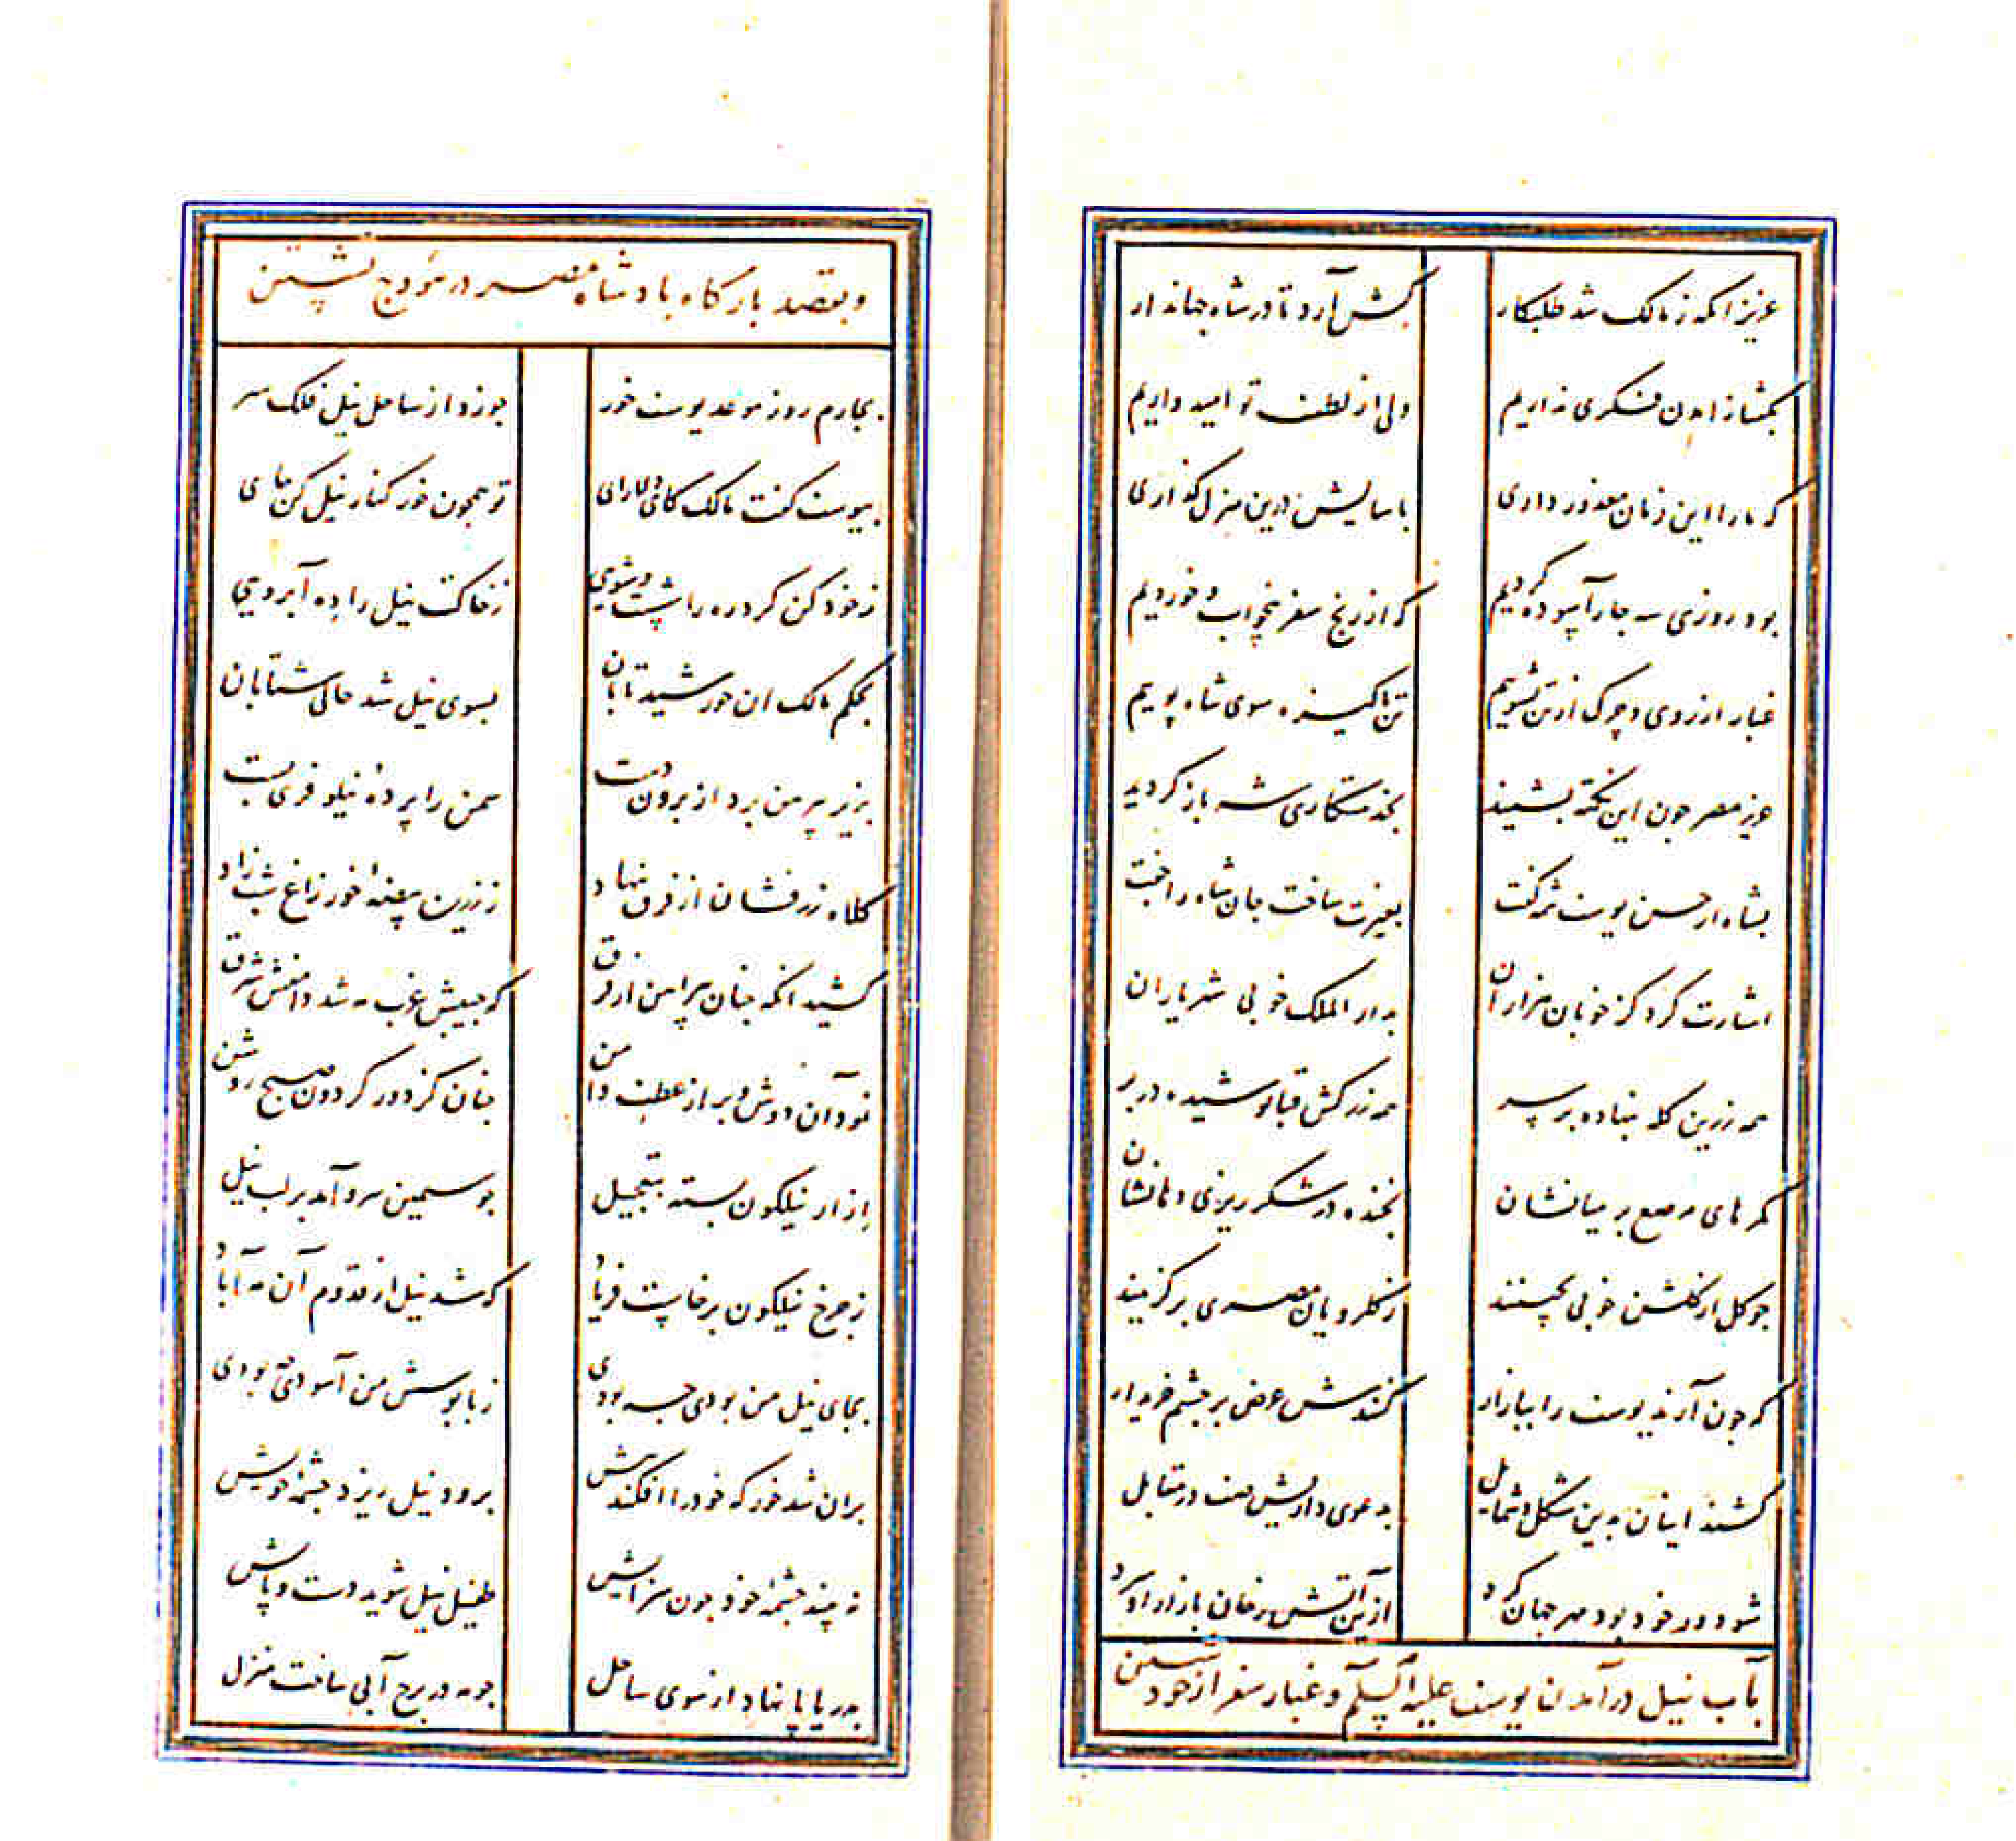 عزیز انکه ز مالک شد طلبکار
کش آرد تا در شاه جهاندار
بکفتا ز امدن فکری نداریم
ولی از لطف تو امید داریم
که ما را این زمان معذور داری
باسایش درین منزل کذاری
بود روزی سه جار آسوده کردیم
که از رنج سفر بیخواب و خوردیم
غبار از روی و چرک از تن بشویم
تن پاکیزه سوی شاه پویم
عزیز مصر جون این نکته بشنید
بخدمتکاری شه باز کردید
بشاه از حسن یوسف شمه کفت
بغیرت ساخت جان شاه را جفت
اشارت کرد کز خوبان هزاران
بدار الملک خوبی شهریاران
همه زرین کله بنهاده بر سر
همه زرکش قبا پوشیده در بر
کمرهای مرصع بر میانشان
بخنده در شکر ریزی دهانشان
جو کل از کلشن خوبی بچینند
ز کلرویان مصری برکزینند
که جون آرند یوسف را ببازار
کنندش عرض بر جشم خریدار
کشند اینان بدین شکل و شمایل
بدعوی داریش صف در مقابل
شود ور خود بود مهر جهان کرد
ازین آتش رخان بازار او سرد
بآب نیل درآمدن یوسف علیه السلم و غبار سفر از خود شستن
و بقصد بارکاه بادشاه مصر در هودج نشستن
بجارم روز موعد یوسف خور
جو زد از ساحل نیل فلک سر
بیوسف کفت مالک کای دلارای
تو همجون خور کنار نیل کن جای
ز خود کن کرد ره را شست و شویی
ز خاکت نیل را ده آبرویی
بحکم مالک ان خورشید تابان
بسوی نیل شد حالی شتابان
بزیر پیرهن برد از برون دست
سمن را پردهٔ نیلوفری بست
کلاه زرفشان از فرق بنهاد
ز زرین بیضهٔ خور زاغ شب زاد
کشید انکه جنان پیراهن از فرق
که جیبش غرب مه شد دامنش شرق
نمود آن دوش و بر از عطف دامن
جنان کز دور کردون صبح روشن
ازار نیلکون بسته بتعجیل
جو سیمین سرو آمد بر لب نیل
ز جرخ نیلکون برخاست فریاد
که شد نیل از قدوم آن مه آباد
بجای نیل من بودی جه بودی
ز پابوسش من آسودی بودی
بران شد خور که خود را افکند پیش
برود نیل ریزد جشمهٔ خویش
نه بیند جشمهٔ خود جون سزایش
طفیل نیل شوید دست و پایش
بدریا پا نهاد از سوی ساحل
جو مه در برج آبی ساخت منزل